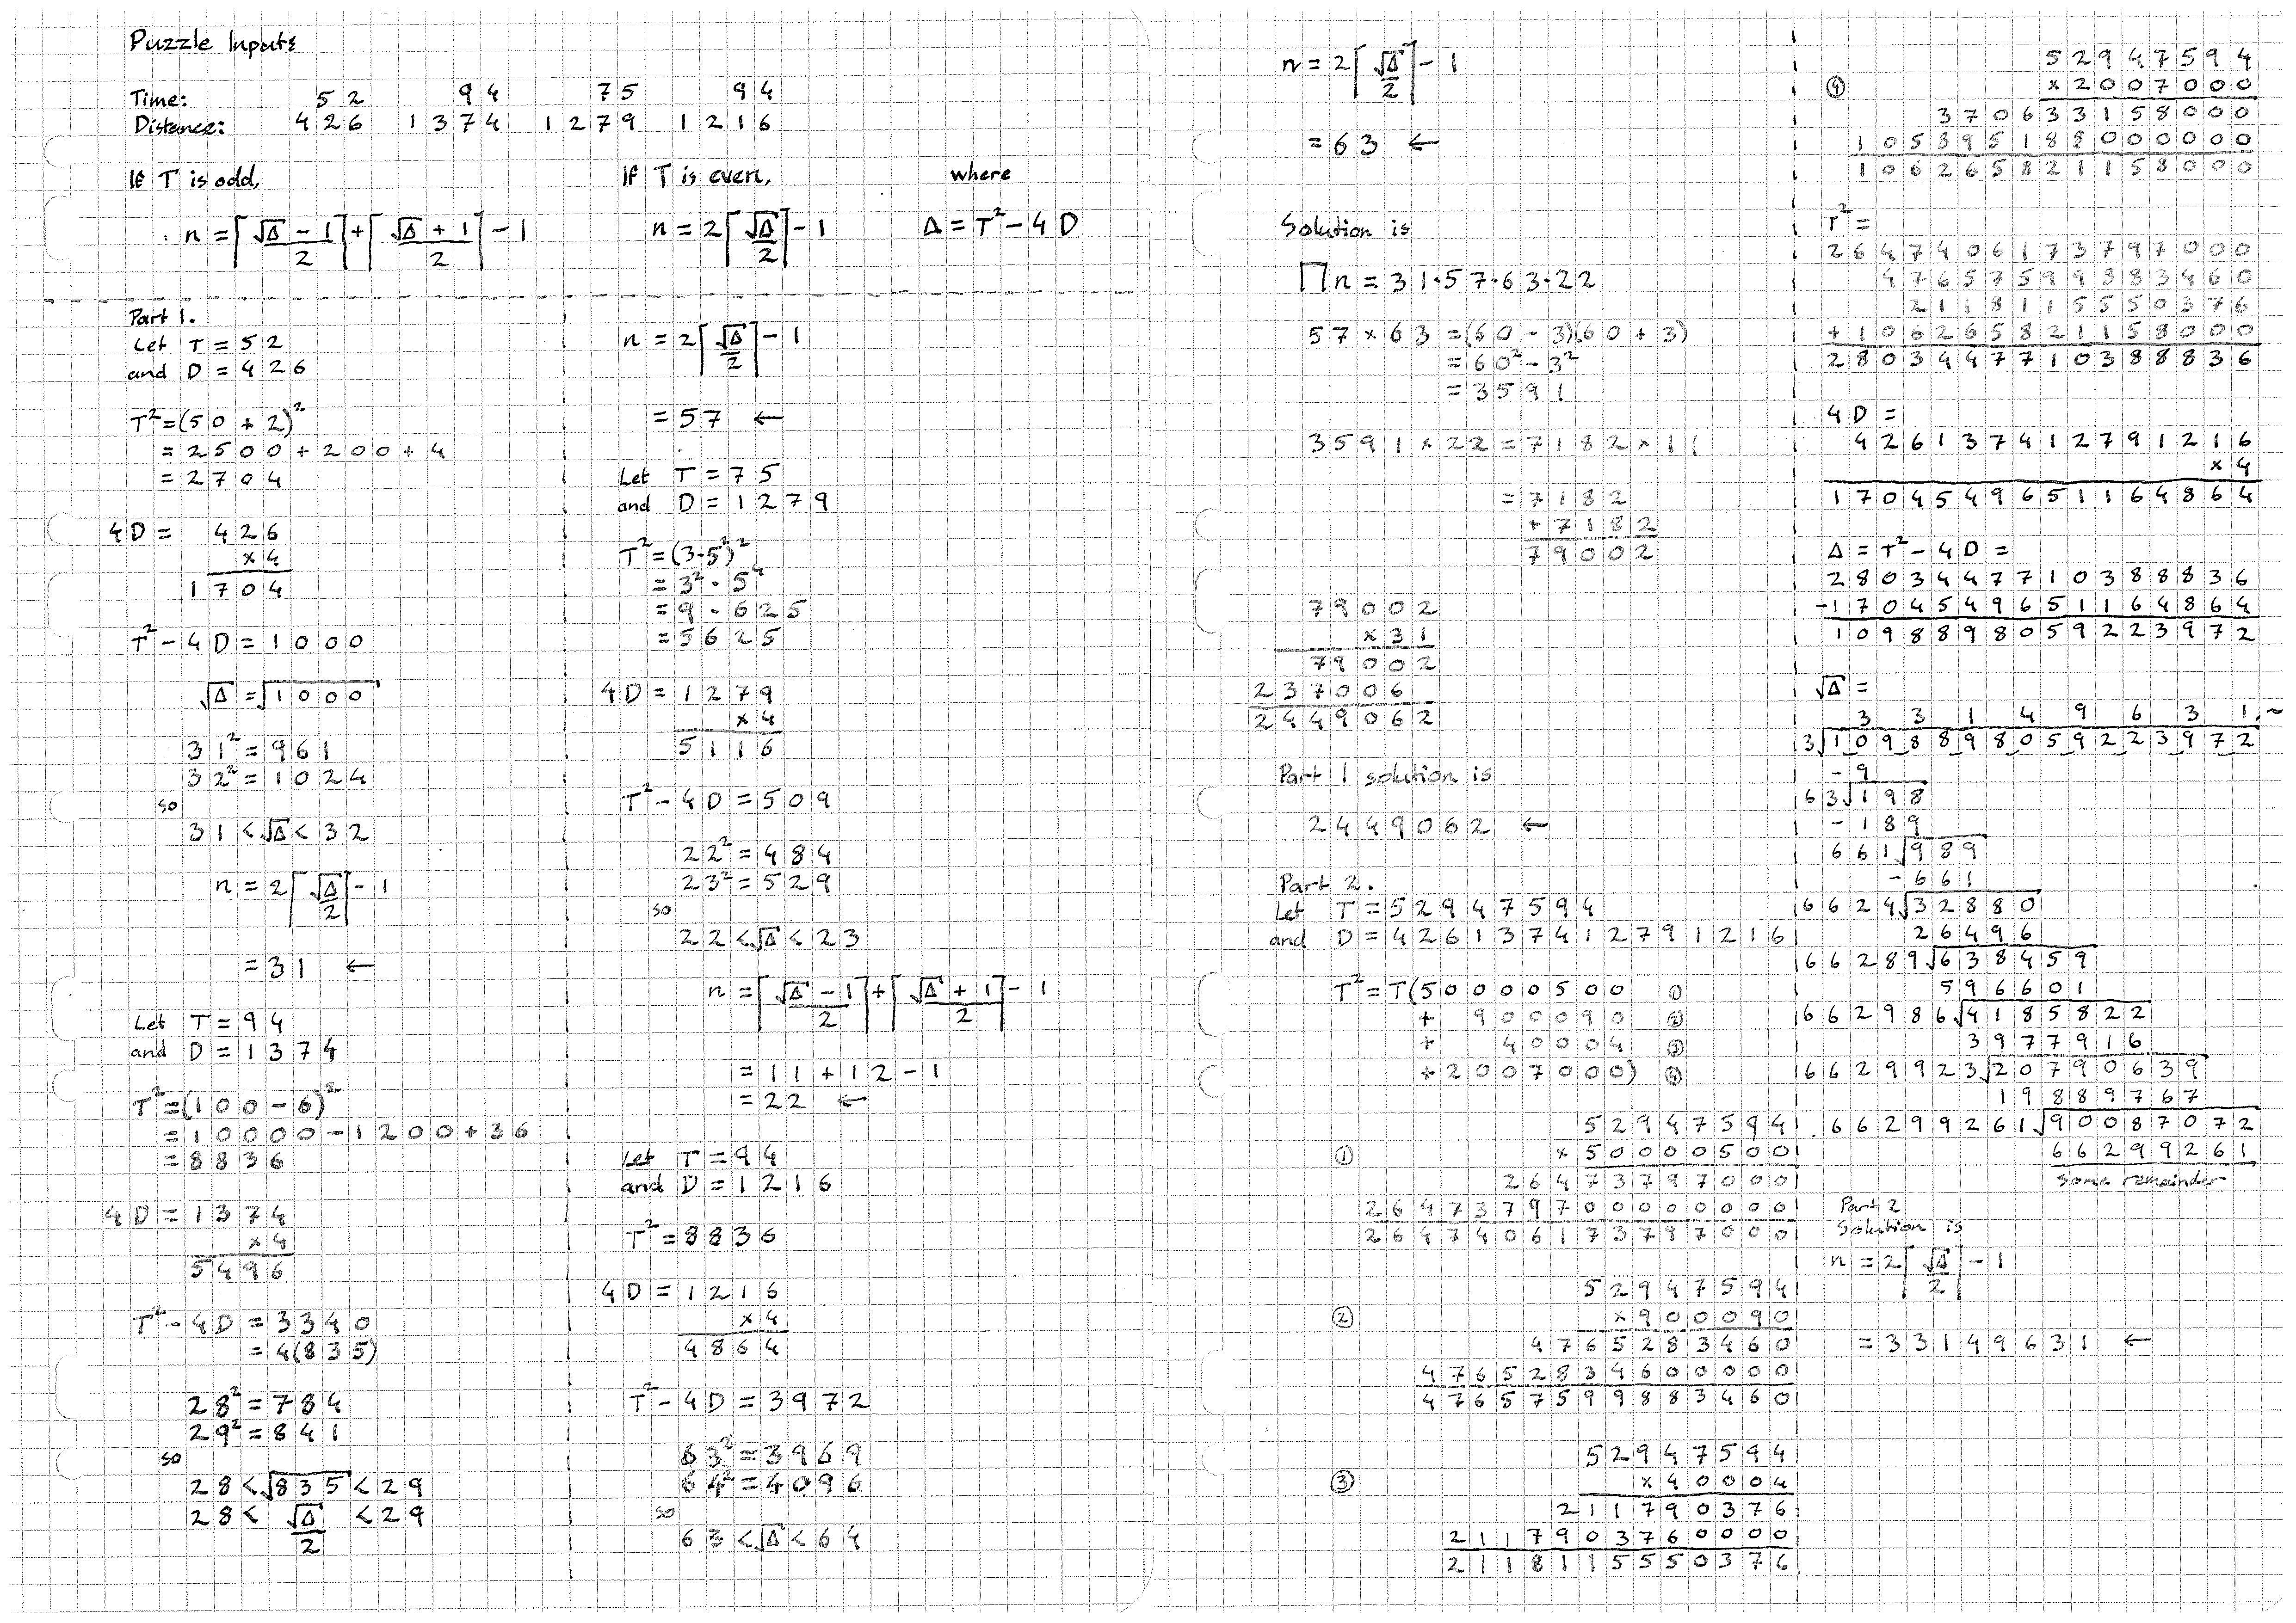 Puzzle Inputs
Time: 52 94 75 94
Distance: 426 1374 1279 1216
If T is odd,
n = ⌈(√Δ - 1)/2⌉ + ⌈(√Δ + 1)/2⌉ - 1
If T is even,
n = 2⌈√Δ/2⌉ - 1
where
Δ = T² - 4D
Part 1.
Let T = 52
and D = 426
T² = (50 + 2)²
= 2500 + 200 + 4
= 2704
4D = 426
× 4
1704
T² - 4D = 1000
√Δ = √1000
31² = 961
32² = 1024
so
31 < √Δ < 32
n = 2⌈√Δ/2⌉ - 1
= 31 ←
Let T = 94
and D = 1374
T² = (100 - 6)²
= 10000 - 1200 + 36
= 8836
4D = 1374
× 4
5496
T² - 4D = 3340
= 4(835)
28² = 784
29² = 841
so
28 < √835 < 29
28 < √Δ/2 < 29
n = 2⌈√Δ/2⌉ - 1
= 57 ←
Let T = 75
and D = 1279
T² = (3·5²)²
= 3² · 5⁴
= 9 · 625
= 5625
4D = 1279
× 4
5116
T² - 4D = 509
22² = 484
23² = 529
so
22 < √Δ < 23
n = ⌈(√Δ - 1)/2⌉ + ⌈(√Δ + 1)/2⌉ - 1
= 11 + 12 - 1
= 22 ←
Let T = 94
and D = 1216
T² = 8836
4D = 1216
× 4
4864
T² - 4D = 3972
63² = 3969
64² = 4096
so
63 < √Δ < 64
n = 2⌈√Δ/2⌉ - 1
= 63 ←
Solution is
∏n = 31·57·63·22
57 × 63 = (60 - 3)(60 + 3)
= 60² - 3²
= 3591
3591 × 22 = 7182 × 11
= 7182
+ 7182
79002
79002
× 31
79002
237006
2449062
Part 1 solution is
2449062 ←
Part 2.
Let T = 52947594
and D = 426137412791216
T² = T(50000500 ①
+ 900090 ②
+ 40004 ③
+ 2007000) ④
52947594
① × 50000500
26473797000
264737970000000
2647406173797000
52947594
② × 900090
4765283460
47652834600000
47657599883460
52947594
③ × 40004
211790376
2117903760000
2118115550376
52947594
④ × 2007000
370633158000
105895188000000
106265821158000
T² =
2647406173797000
47657599883460
2118115550376
+ 106265821158000
2803447710388836
4D =
426137412791216
× 4
1704549651164864
Δ = T² - 4D =
2803447710388836
- 1704549651164864
1098898059223972
√Δ =
3 3 1 4 9 6 3 1.~
3√1098898059223972
- 9
63√198
- 189
661√989
- 661
6624√32880
26496
66289√638459
596601
662986√4185822
3977916
6629923√20790639
19889767
66299261√90087072
66299261
some remainder
Part 2
Solution is
n = 2⌈√Δ/2⌉ - 1
= 33149631 ←